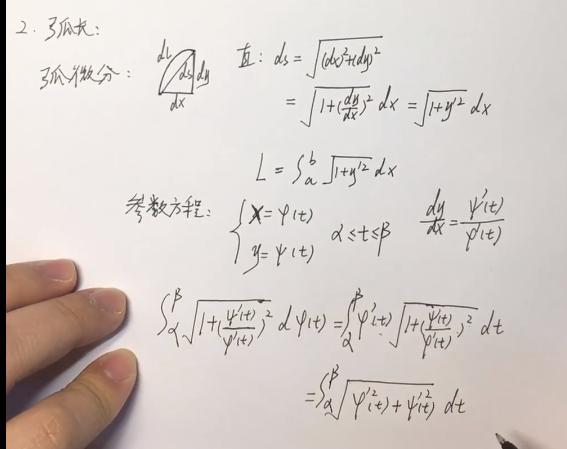 2. 弧长:
弧微分: dL ds dy dx 直: ds = √((dx)²+(dy)²)
= √(1+(dy/dx)²) dx = √(1+y'²) dx
L = ∫ₐᵇ √(1+y'²) dx
参数方程: { x = φ(t) y = ψ(t) α ≤ t ≤ β dy/dx = ψ'(t)/φ'(t)
∫_α^β √(1+(ψ'(t)/φ'(t))²) dφ(t) = ∫_α^β φ'(t) √(1+(ψ'(t)/φ'(t))²) dt
= ∫_α^β √(φ'²(t)+ψ'²(t)) dt